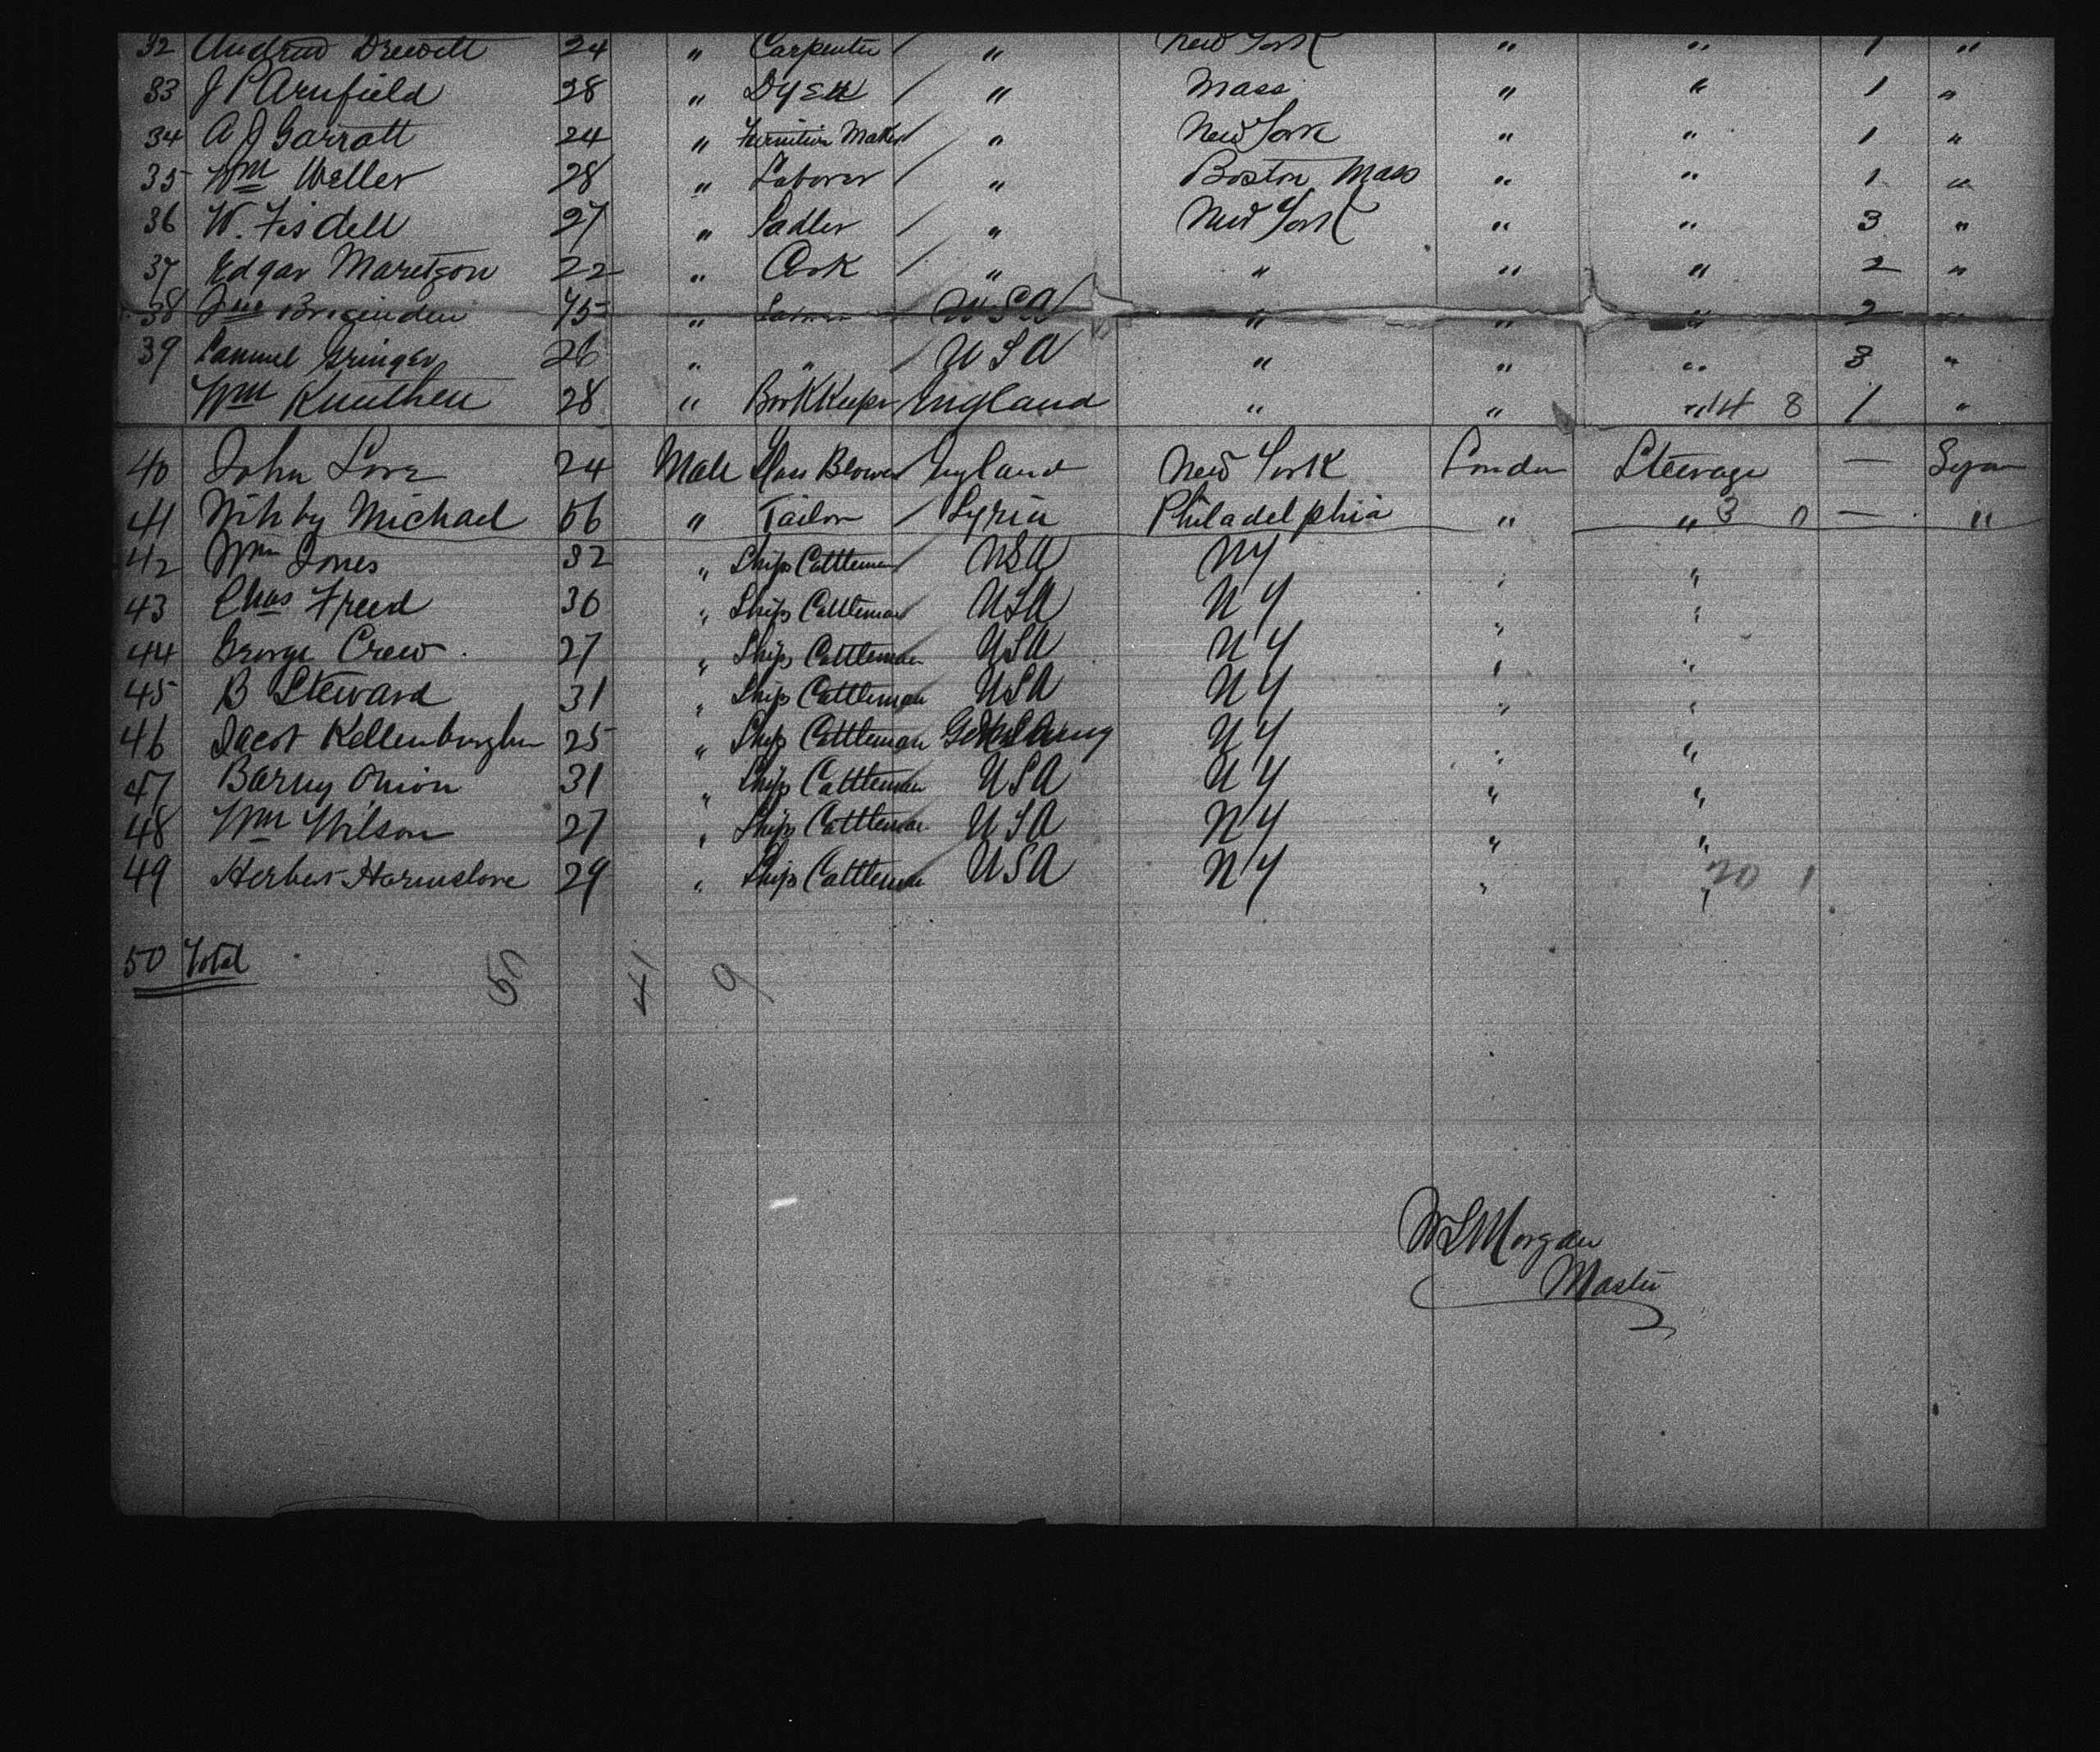 32 Andrew Drewett 24 " Carpenter / " New York " " 1 "
33 J P Arnfield 28 " Dyer / " Mass " " 1 "
34 A J Garratt 24 " Furniture Maker / " New York " " 1 "
35 Wm Weller 28 " Laborer / " Boston Mass " " 1 "
36 W. Tisdell 27 " Sadler / " New York " " 3 "
37 Edgar 22 " / " " " " 2 "
38 45 " USA " " " 2 "
39 Samuel 26 " " / USA " " " 3 "
Wm 28 " BookKeeper England " " " 14 8 1 "
40 John 24 Male Glass Blower England New York London Steerage —
41 Michael 56 " Tailor / Syria Philadelphia " " 3 0 — "
42 Wm Jones 32 " Ships Cattleman USA NY " "
43 Chas Freed 30 " Ships Cattleman USA NY " "
44 George Crew 27 " Ships Cattleman USA NY " "
45 B Steward 31 " Ships Cattleman USA NY " "
46 Jacob 25 " Ships Cattleman NY " "
47 Barny Onion 31 " Ships Cattleman USA NY " "
48 Wm Wilson 27 " Ships Cattleman USA NY " "
49 29 " Ships Cattleman USA NY " " 20 1
50 Total 50 41 9
W L Morgan
Master